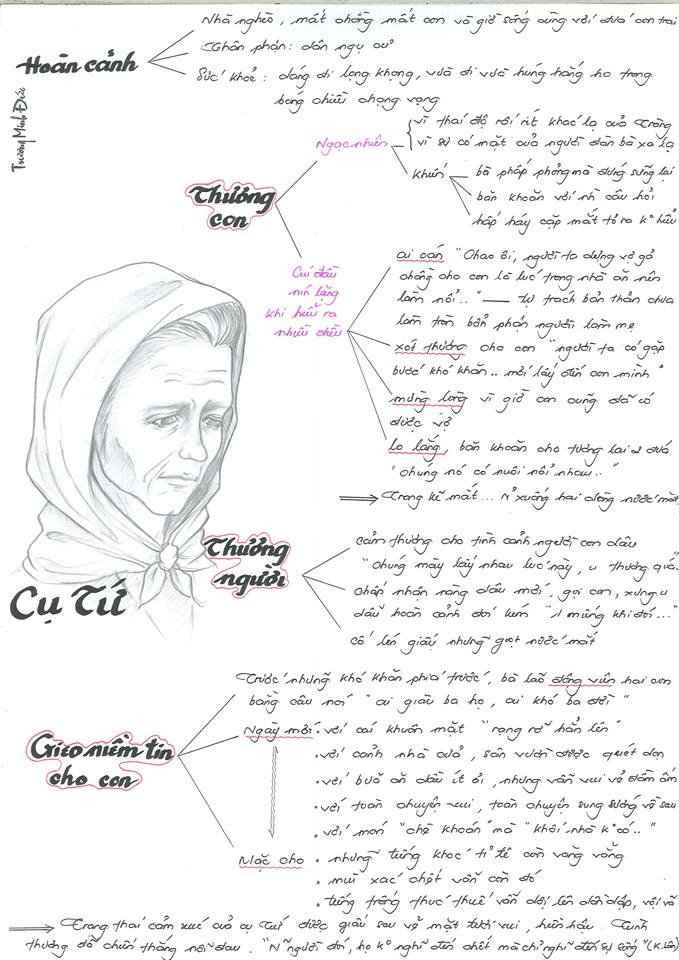 Nhà nghèo, mất chồng mất con và giờ sống cùng với đứa con trai
Hoàn cảnh
Thân phận: dân ngụ cư
Sức khoẻ: dáng đi lọng khọng, vừa đi vừa húng hắng ho trong
bóng chiều chạng vạng
Trương Minh Đức
Thương
con
Ngạc nhiên
vì thái độ rối rít khác lạ của Tràng
vì sự có mặt của người đàn bà xa lạ
khiến
bà phấp phỏng mà đứng sững lại
băn khoăn với nh` câu hỏi
hấp háy cặp mắt tỏ ra k° hiểu
Cúi đầu
nín lặng
khi hiểu ra
nhiều điều
ai oán "Chao ôi, người ta dựng vợ gả
chồng cho con là lúc trong nhà ăn nên
làm nổi.." — tự trách bản thân chưa
làm tròn bổn phận người làm mẹ
xót thương cho con "người ta có gặp
bước khó khăn.. mới lấy đến con mình"
mừng lòng vì giờ con cũng đã có
được vợ
lo lắng, băn khoăn cho tương lai 2 đứa
"chúng nó có nuôi nổi nhau.."
Trong kẽ mắt... rỉ xuống hai dòng nước mắt
Thương
người
cảm thương cho tình cảnh người con dâu
"chúng mày lấy nhau lúc này, u thương quá.
chấp nhận nàng dâu mới, gọi con, xưng u
dẫu hoàn cảnh đói kém "1 miếng khi đói..."
cố lén giấu những giọt nước mắt
Cụ Tứ
Gieo niềm tin
cho con
Trước những khó khăn phía trước, bà lão động viên hai con
bằng câu nói "ai giàu ba họ, ai khó ba đời"
Ngày mới . với cái khuôn mặt "rạng rỡ hẳn lên"
. với cảnh nhà cửa, sân vườn được quét dọn
. với bữa ăn dẫu ít ỏi, nhưng vẫn vui vẻ đầm ấm
. với toàn chuyện vui, toàn chuyện sung sướng về sau
. với món "chè khoán" mà "khối nhà k° có.."
Mặc cho . những tiếng khóc tỉ tê còn vang vẳng
. mùi xác chết vẫn còn đó
. tiếng trống thúc thuế vẫn dội lên dồn dập, vội vã
Trạng thái cảm xúc của cụ Tứ được giấu sau vẻ mặt tươi vui, hiền hậu. Tình
thương đã chiến thắng nỗi đau. "N~ người đói, họ k° nghĩ đến chết mà chỉ nghĩ đến sự sống" (K.Lân)